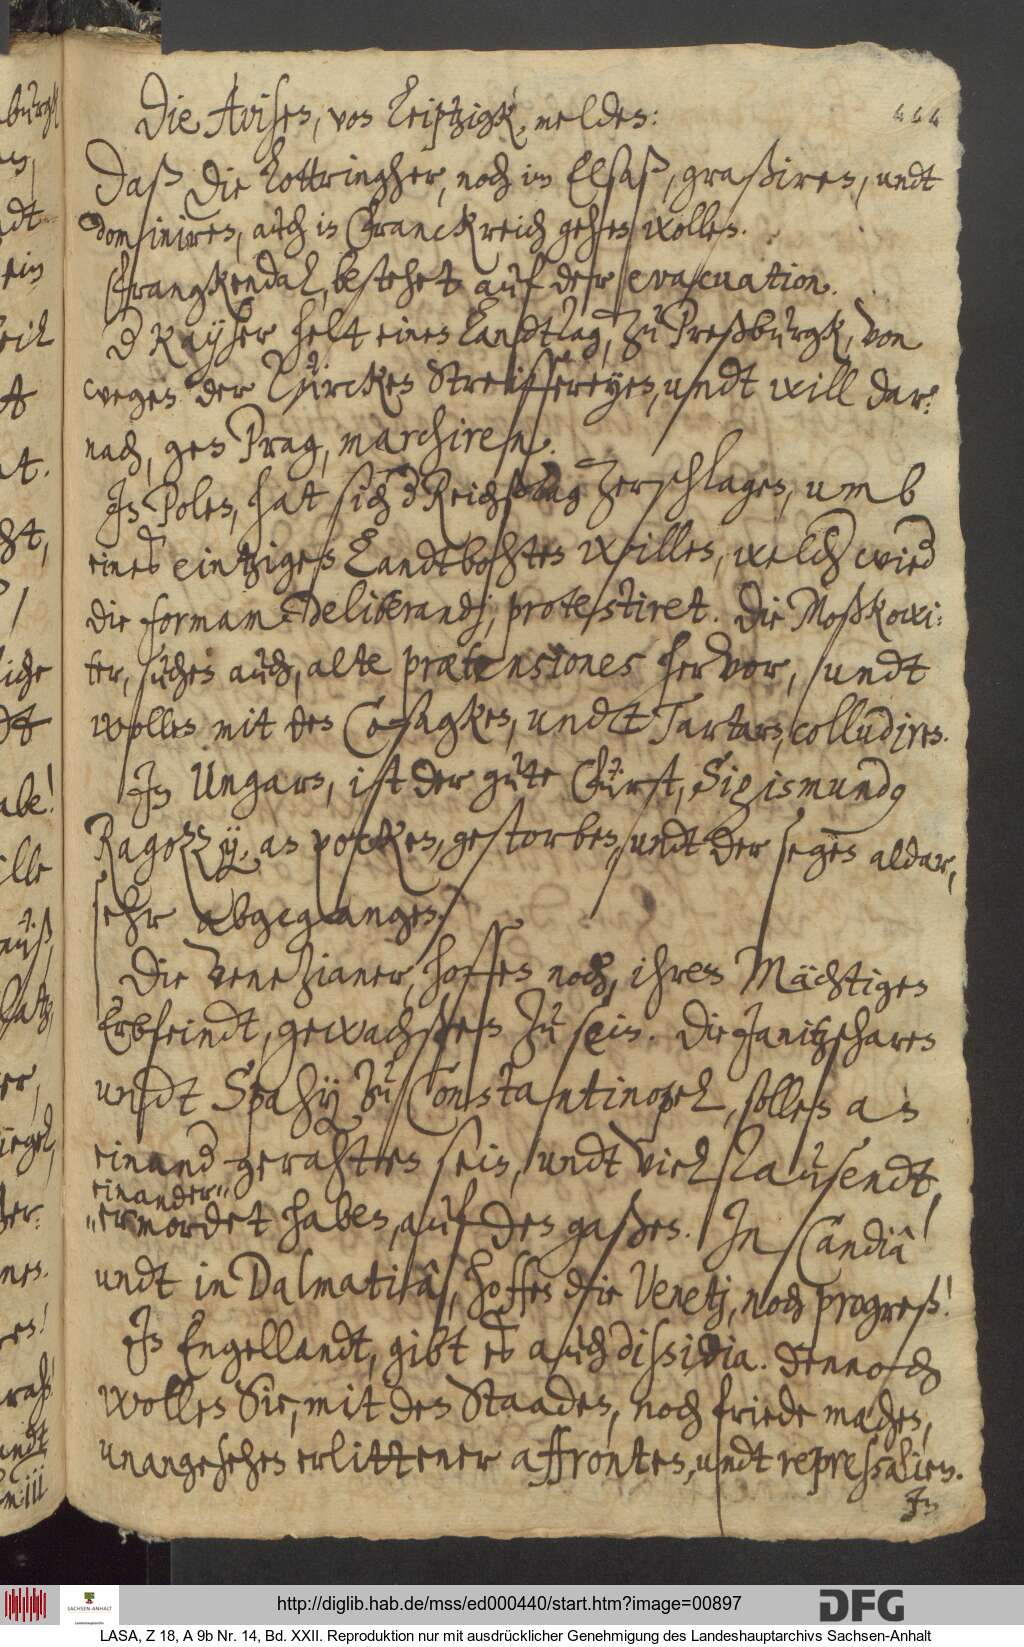 444
Die Avisen, von Leiptzigk, melden:
Daß die Lottringher, noch im Elsaß, graßiren, undt
dominiren, auch in Franckreich gehen wollen.
Frangkendal, bestehet auf der evacuation.
d Kayser helt einen Landtag, zu Preßburgk, von
wegen der Türcken Streiffereyen, undt will dar:
nach, gen Prag, marchiren.
In Polen, hat sich d Reichßtag zerschlagen, umb
eines eintzigen Landtbohten willen, welch wied
die formam deliberandj, protestiret. Die Moßkowi:
ter, suchen auch, alte prætensiones hervor, undt
wollen mit den Cosagken, undt Tartarn, colludiren.
In Ungarn, ist der gute Fürst, Sigismundg
Ragozzy, an pocken, gestorben, undt der segen aldar,
sehr abgegangen.
Die Venezianer, hoffen noch, ihrem Mächtigen
Erbfeindt, gewachßen zu sein. Die Janitzscharen
undt Spahy zu Constantinopel, sollen an
einand gerahten sein, undt viel Tausendt,
einander"
"ermordet haben, auf den gaßen. In Candiâ
undt in Dalmatiâ, hoffen die Venetj, noch progreß!
In Engellandt, gibt es auch dissidia. Dennoch
wollen Sie, mit den Staaden, noch friede machen,
unangesehen erlittener affronten, undt repressalien.
In
http://diglib.hab.de/mss/ed000440/start.htm?image=00897
DFG
SACHSEN-ANHALT
LASA, Z 18, A 9b Nr. 14, Bd. XXII. Reproduktion nur mit ausdrücklicher Genehmigung des Landeshauptarchivs Sachsen-Anhalt